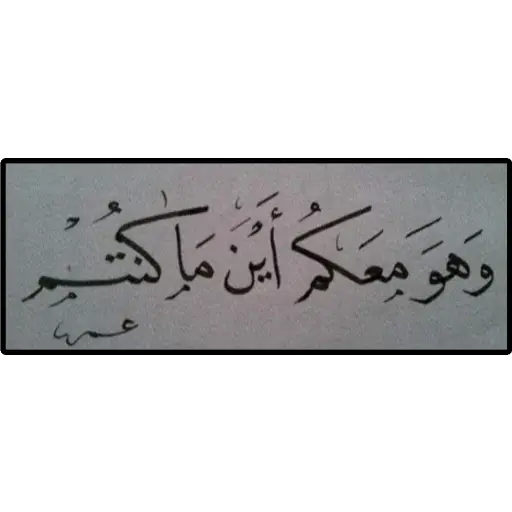 وَهَوَ مَعَكُمْ أَيْنَ مَا كُنْتُمْ
عمر